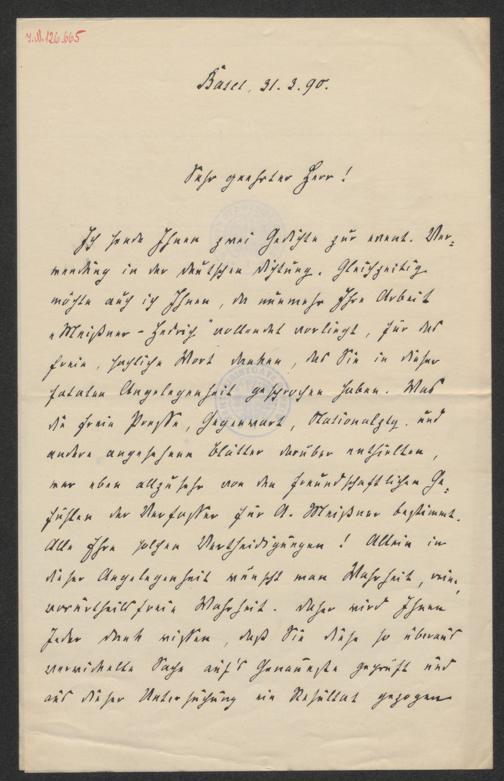 I.N. 126.665
Basel, 31. 3. 90.
Sehr geehrter Herr!
Ich sende Ihnen zwei Gedichte zur event. Ver-
wendung in der deutschen Dichtung. Gleichzeitig
möchte auch ich Ihnen, da nunmehr Ihre Arbeit
"Meißner-Hedrich" vollendet vorliegt, für das
freie, sachliche Wort danken, das Sie in dieser
fatalen Angelegenheit gesprochen haben. Was
die freie Presse, Gegenwart, Nationalztg. und
andere angesehene Blätter darüber enthielten,
war eben allzusehr von den freundschaftlichen Ge-
fühlen der Verfasser für A. Meißner bestimmt.
Alle Ehre solchen Vertheidigungen! Allein in
dieser Angelegenheit wünscht man Wahrheit, reine,
vorurtheilsfreie Wahrheit. Daher wird Ihnen
Jeder Dank wissen, daß Sie diese so überaus
verwickelte Sache auf's Genaueste geprüft und
aus dieser Untersuchung ein Resultat gezogen